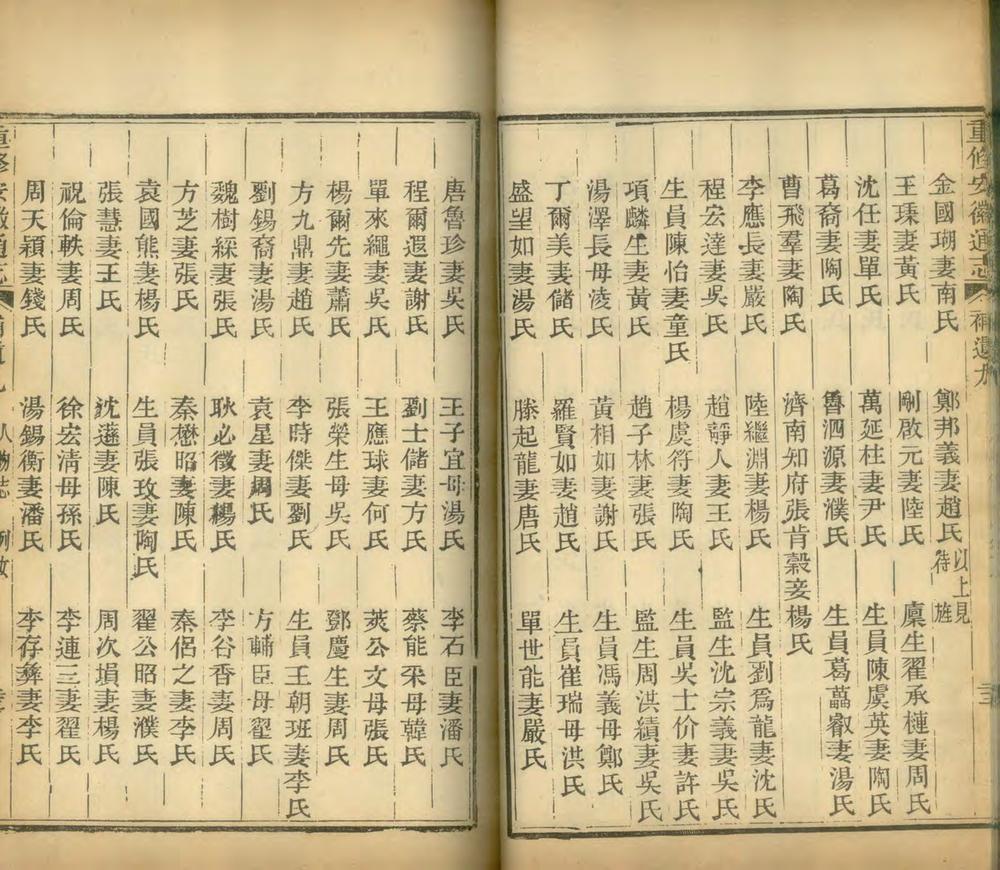 重修安徽通志 補遺九
金國瑚妻南氏 鄭邦義妻趙氏 以上見待旌
王琹妻黃氏 剛啟元妻陸氏 廩生翟承槤妻周氏
沈任妻單氏 萬延柱妻尹氏 生員陳虞英妻陶氏
葛裔妻陶氏 魯泗源妻濮氏 生員葛藟叡妻湯氏
曹飛羣妻陶氏 濟南知府張肯穀妾楊氏
李應長妻嚴氏 陸繼淵妻楊氏 生員劉爲龍妻沈氏
程宏達妻吳氏 趙靜人妻王氏 監生沈宗義妻吳氏
生員陳怡妻童氏 楊虞符妻陶氏 生員吳士价妻許氏
項麟生妻黃氏 趙子林妻張氏 監生周洪績妻吳氏
湯澤長母凌氏 黃相如妻謝氏 生員馮義母鄭氏
丁爾美妻儲氏 羅賢如妻趙氏 生員崔瑞母洪氏
盛望如妻湯氏 滕起龍妻唐氏 單世能妻嚴氏
唐魯珍妻吳氏 王子宜母湯氏 李石臣妻潘氏
程爾遐妻謝氏 劉士儲妻方氏 蔡能采母韓氏
單來繩妻吳氏 王應球妻何氏 莢公文母張氏
楊爾先妻蕭氏 張榮生母吳氏 鄧慶生妻周氏
方九鼎妻趙氏 李時傑妻劉氏 生員王朝班妻李氏
劉錫裔妻湯氏 袁星妻周氏 方輔臣母翟氏
魏樹綵妻張氏 耿必徵妻楊氏 李谷香妻周氏
方芝妻張氏 秦懋昭妻陳氏 秦侶之妻李氏
袁國熊妻楊氏 生員張玫妻陶氏 翟公昭妻濮氏
張慧妻王氏 沈蓬妻陳氏 周次塤妻楊氏
祝倫軼妻周氏 徐宏清母孫氏 李連三妻翟氏
周天穎妻錢氏 湯錫衡妻潘氏 李存彝妻李氏
重修安徽通志 人物志 列女